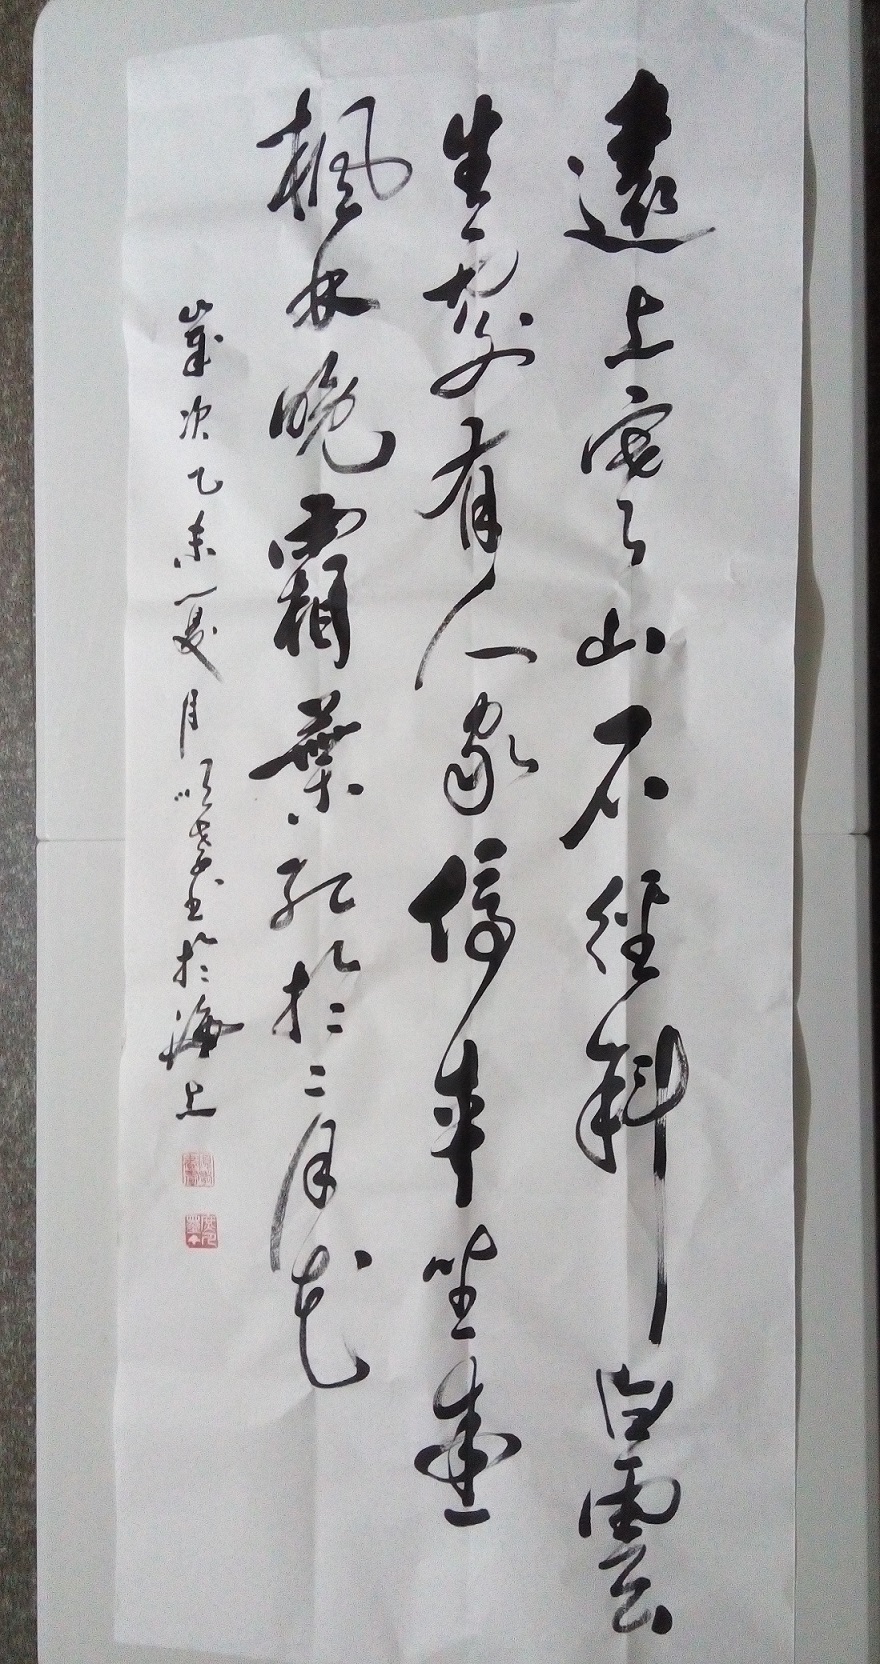 遠上寒山石径斜白雲
生處有人家停車坐愛
楓林晚霜葉紅於二月花
歲次乙未夏月 書於海上